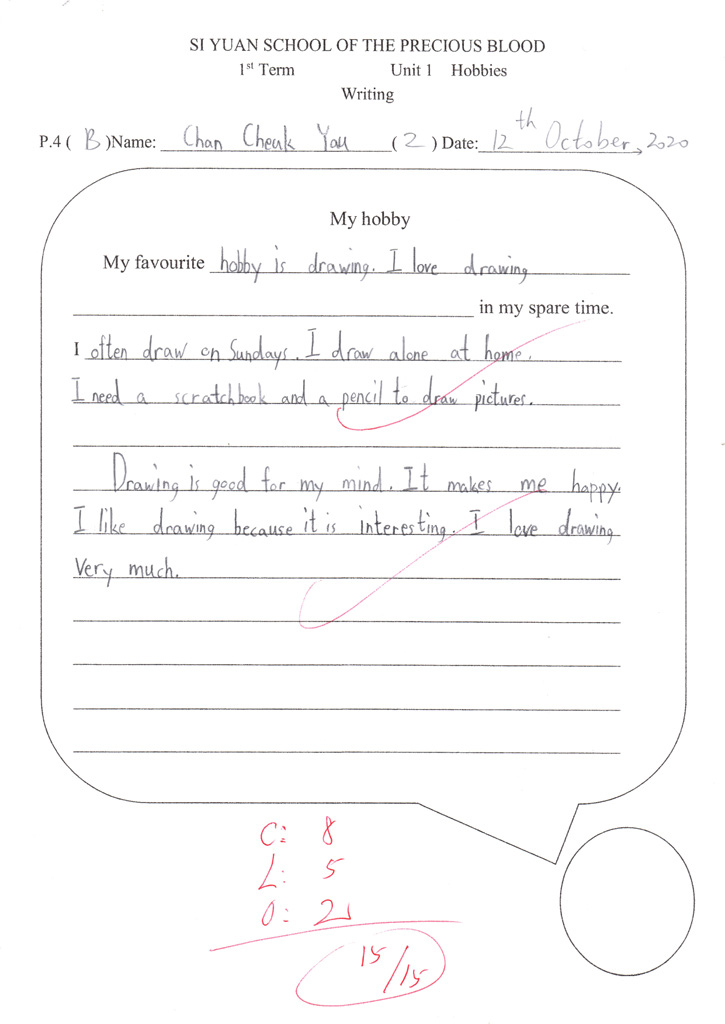 SI YUAN SCHOOL OF THE PRECIOUS BLOOD
1st Term Unit 1 Hobbies
Writing
P.4 ( B )Name: Chan Cheuk Yau ( 2 ) Date: 12th October, 2020
My hobby
My favourite hobby is drawing. I love drawing
in my spare time.
I often draw on Sundays. I draw alone at home.
I need a scratchbook and a pencil to draw pictures.
Drawing is good for my mind. It makes me happy.
I like drawing because it is interesting. I love drawing
very much.
C: 8
L: 5
O: 2
15/15